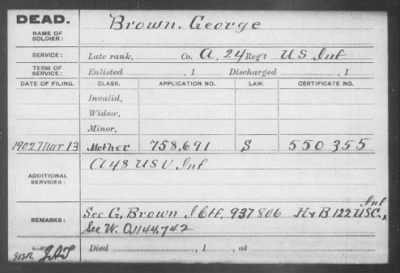 DEAD.
NAME OF SOLDIER:
Brown, George
SERVICE:
Late rank, Co. A, 24 Reg't U S Inf
TERM OF SERVICE:
Enlisted , 1 Discharged , 1
DATE OF FILING. CLASS. APPLICATION NO. LAW. CERTIFICATE NO.
Invalid,
Widow,
Minor,
1902 Mar. 13 Mother 758,691 G 550355
ADDITIONAL SERVICES:
A 48 U S V Inf
REMARKS:
See G. Brown 937806 H & B 122 U S C. Inf
See W. O. 1144,742
Died , 1 , at